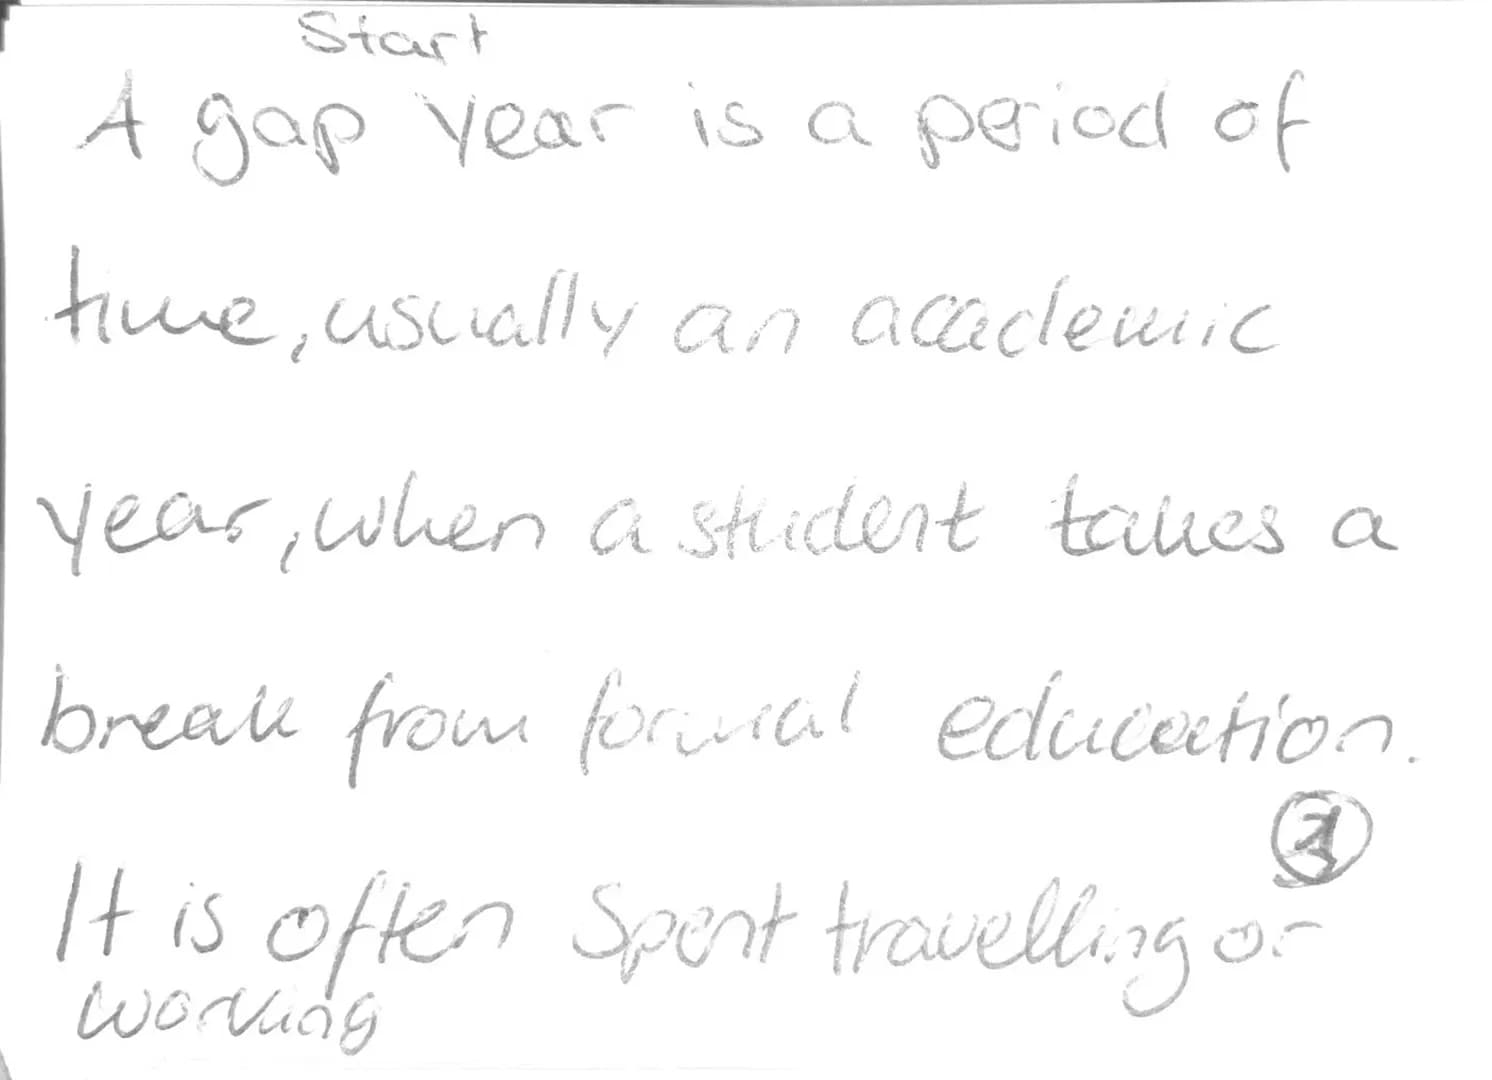 Start
A gap year is a period of
time, usually an academic
year, when a student takes a
break from formal education.
It is often spent travelling or
working